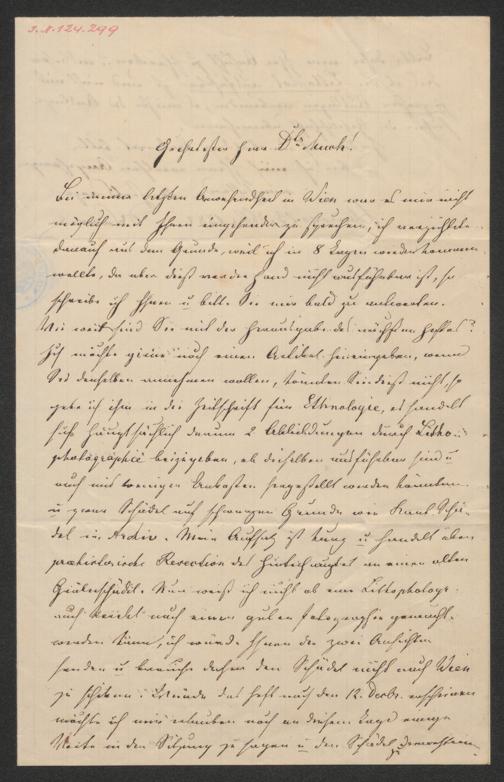 J.N. 124.299
Geehrtester Herr Dr. Much!
Bei meiner letzten Anwesenheit in Wien war es mir nicht
möglich mit Ihnen eingehender zu sprechen, ich verzichtete
darauf aus dem Grunde, weil ich in 8 Tagen wiederkommen
wollte, da aber dieß vor der Hand nicht ausführbar ist, so
schreibe ich Ihnen u bitte Sie mir bald zu antworten.
Wie weit sind Sie mit der Herausgabe des nächsten Heftes?
Ich möchte gerne noch einen Artikel hineingeben, wenn
Sie denselben annehmen wollen, könnten Sie dieß nicht, so
gebe ich ihn in die Zeitschrift für Ethnologie, es handelt
sich hauptsächlich darum 2 Abbildungen durch Litho-
photographie beizugeben, ob dieselben ausführbar sind u
auch mit wenigen Unkosten hergestellt werden könnten
u zwar Schädel auf schwarzem Grunde wie
del im Archiv. Mein Aufsatz ist kurz u handelt über
praehistorische Resection des Hinterhauptes an einem alten
Gräberschädel. Nun weiß ich nicht ob eine Lithophotogr.
auch nach einer guten Fotographie gemacht
werden kann, ich würde Ihnen die zwei Ansichten
senden u brauche daher den Schädel nicht nach Wien
zu schicken. Würde das Heft nach den 12. Decbr. erscheinen
möchte ich mir erlauben noch an diesem Tage einige
Worte in der Sitzung zu sagen u den Schädel zu demonstriren